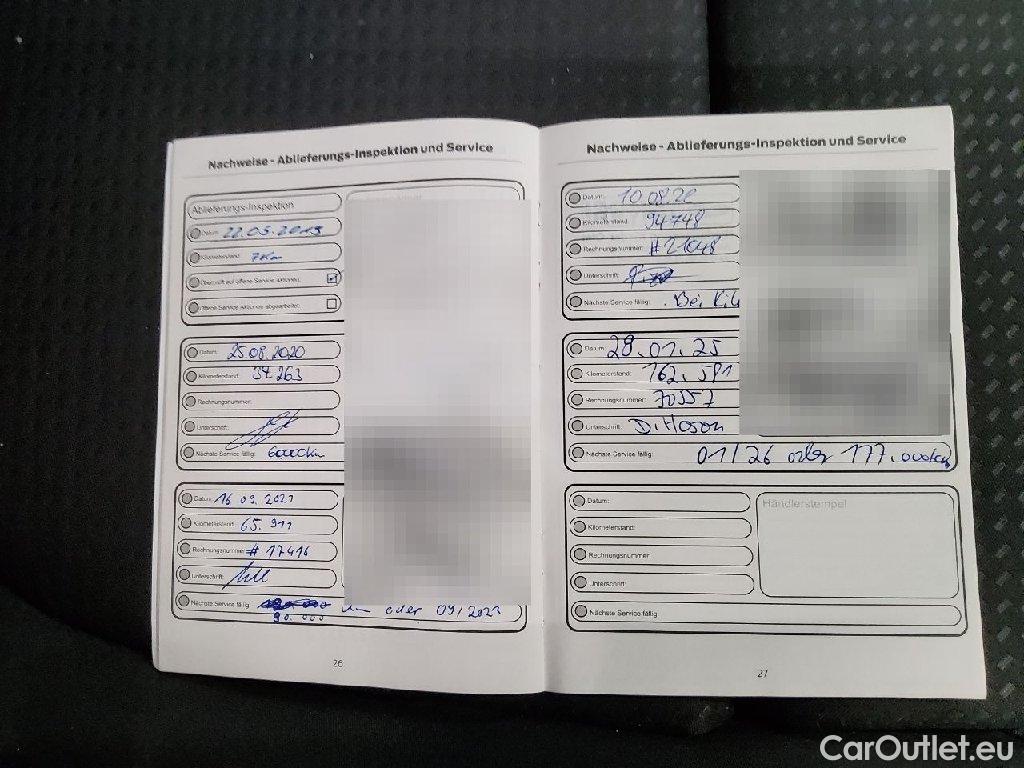 Nachweise - Ablieferungs-Inspektion und Service
Ablieferungs-Inspektion
Datum: 22.05.2019
Kilometerstand: 7 Km
Datum: 25.08.2020
Kilometerstand: 34.263
Rechnungsnummer:
Unterschrift:
Nächste Service fällig:
Datum: 16 09. 2021
Kilometerstand: 65.911
Rechnungsnummer: # 17416
Unterschrift:
Nächste Service fällig: km oder 09/2022
90.000
26
Nachweise - Ablieferungs-Inspektion und Service
Datum: 10.08.22
Kilometerstand: 94748
Rechnungsnummer: #21048
Unterschrift:
Nächste Service fällig: Bei
Datum: 29.01.25
Kilometerstand: 162.591
Rechnungsnummer: 70557
Unterschrift:
Nächste Service fällig: 01/26 oder 177.000km
Datum:
Händlerstempel
Kilometerstand:
Rechnungsnummer
Unterschrift:
Nächste Service fällig
27
CarOutlet.eu